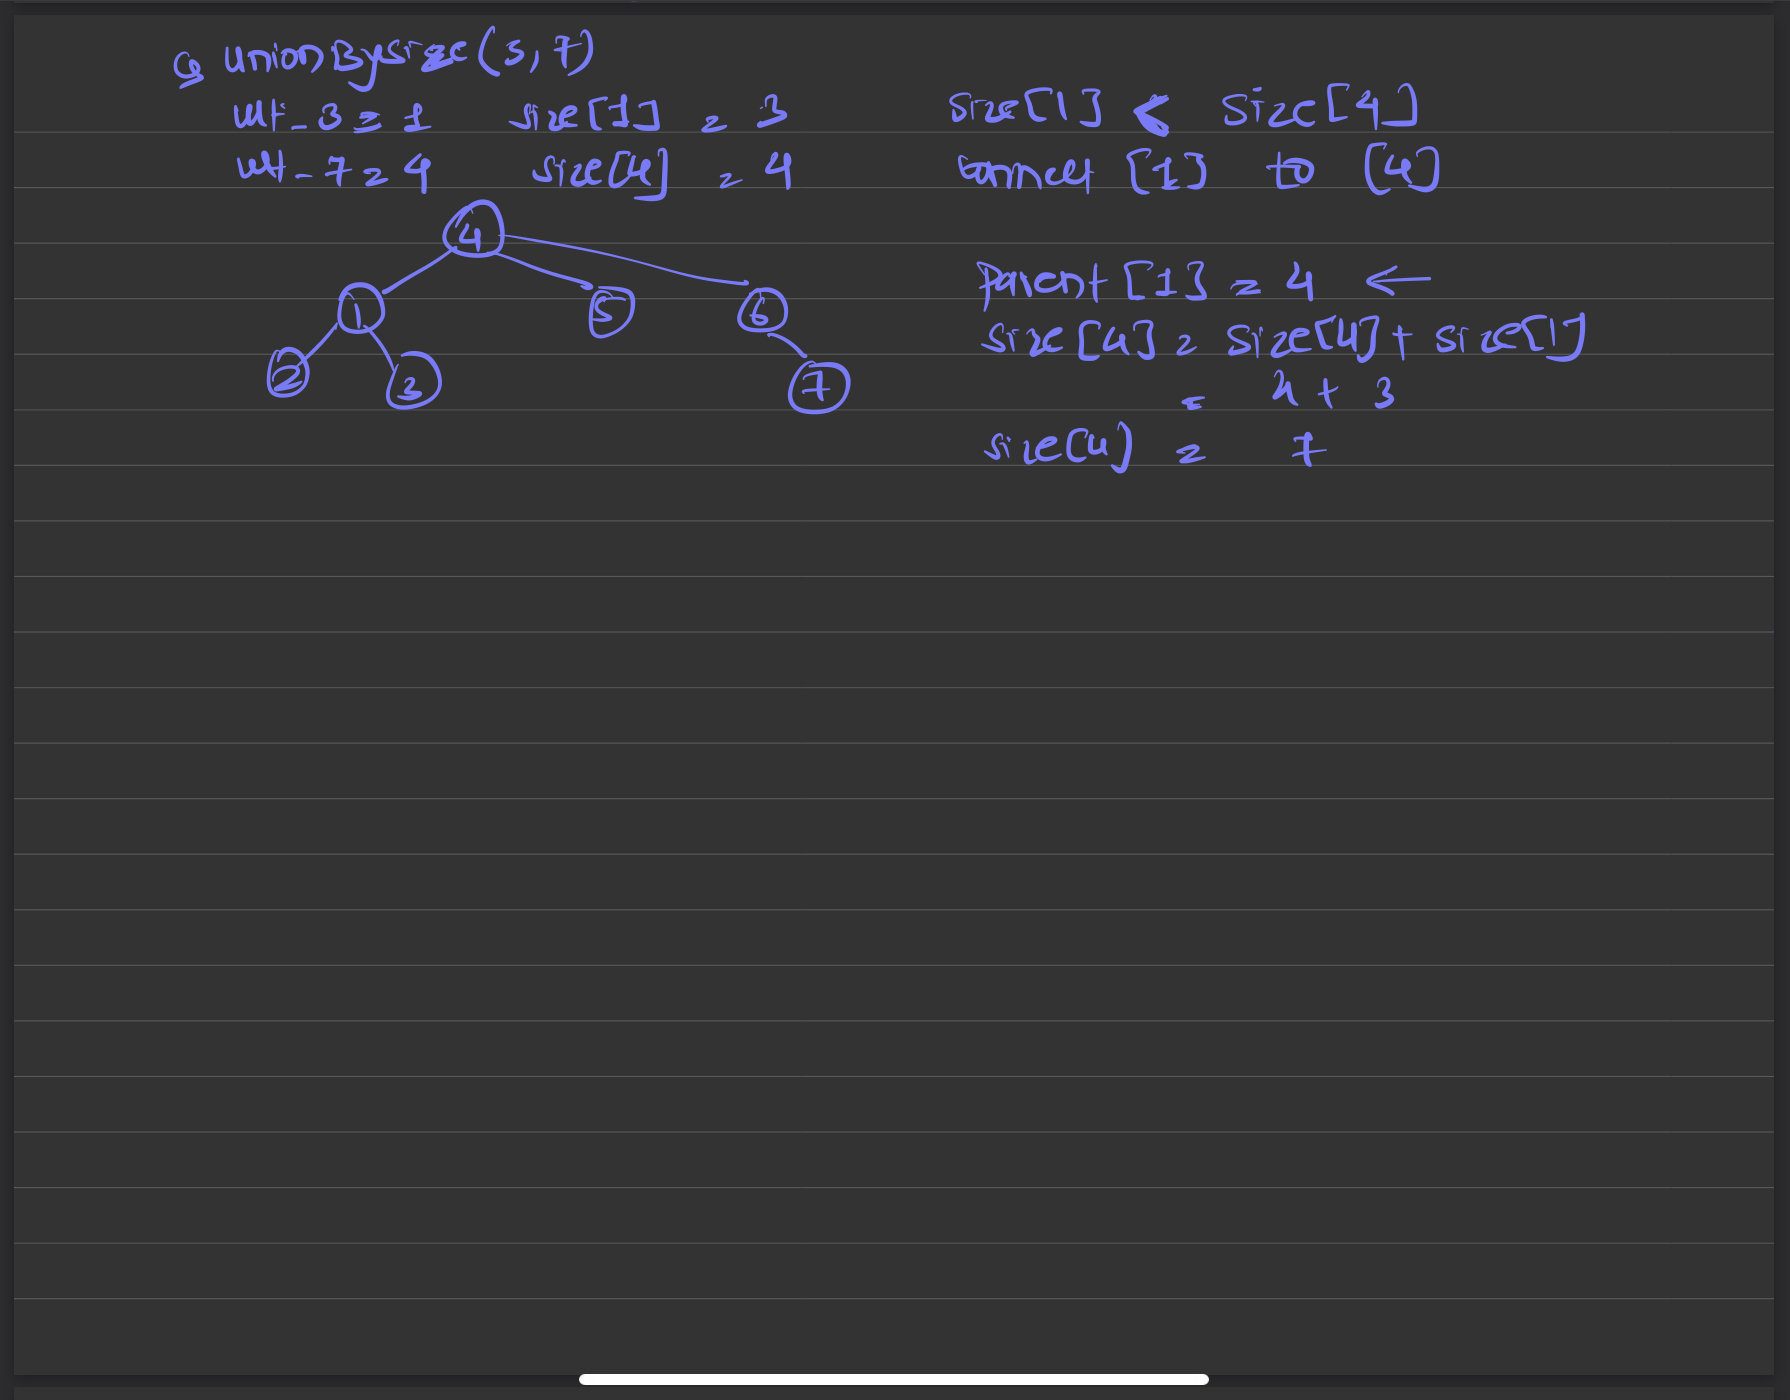 ↳ unionBysize(3,7)
ult_3 = 1 size[1] = 3
ult_7 = 4 size[4] = 4
size[1] < size[4]
connect [1] to [4]
4
1 5 6
2 3 7
parent[1] = 4 ←
size[4] = size[4] + size[1]
= 4 + 3
size[4] = 7